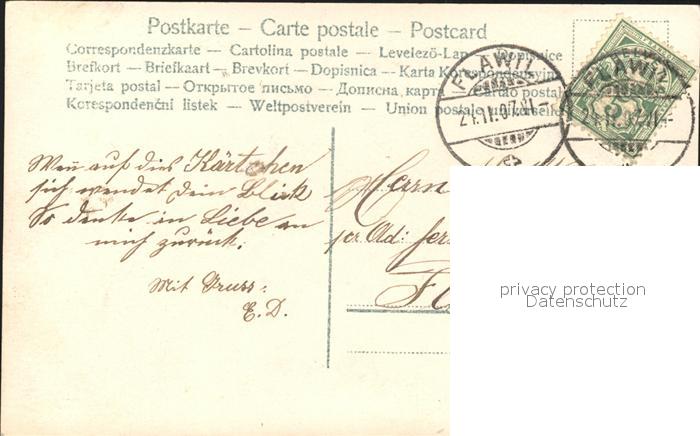 Postkarte – Carte postale – Postcard
Correspondenzkarte – Cartolina postale – Levelező-Lap – Dopisnice
Brefkort – Briefkaart – Brevkort – Dopisnica – Karta Korespondencyjna
Tarjeta postal – Открытое письмо – Дописна карта – Cartão postal
Korespondenční listek – Weltpostverein – Union postale universelle
FLAWIL
FLAWIL
Wenn auf dies Kärtchen
sich wendet dein Blick
So denke in Liebe an
mich zurück.
Mit Gruss:
E. D.
Herrn
per Ad:
privacy protection
Datenschutz